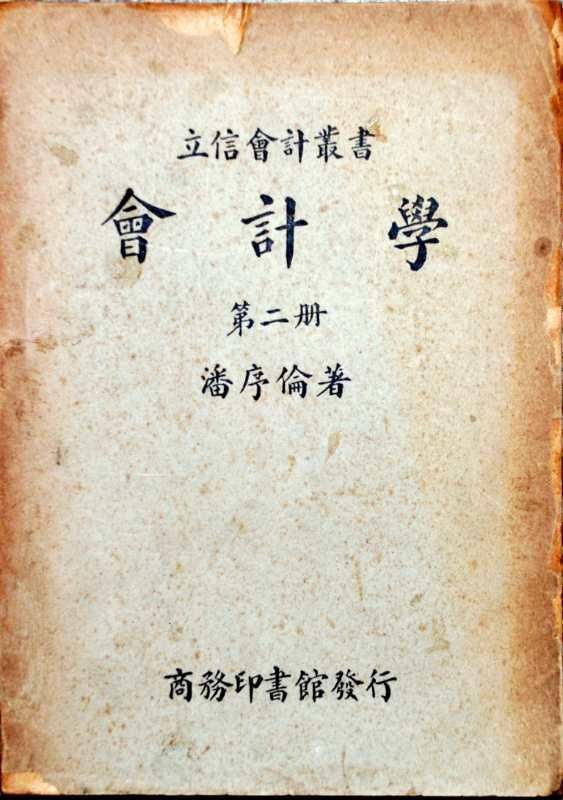 立信會計叢書
會計學
第二册
潘序倫著
商務印書館發行